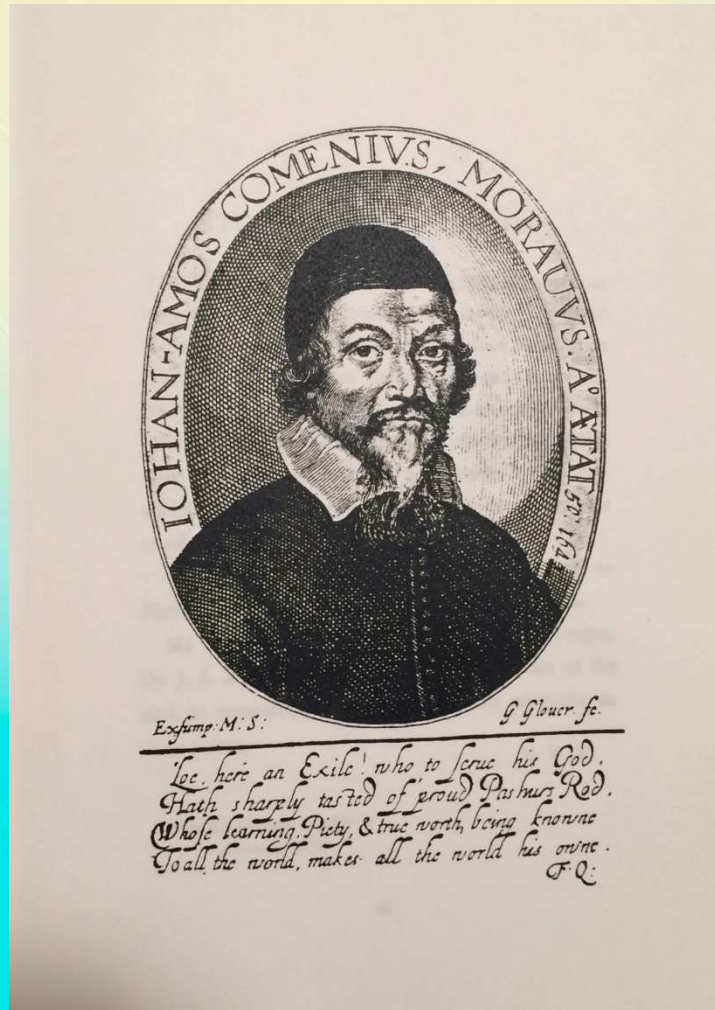 IOHAN-AMOS COMENIVS, MORAUVS. Aº ÆTAT 50: 164
Exsump: M: S:
G Glouer. fe.
Loe, here an Exile! who to serue his God,
Hath sharply tasted of proud Pashurs Rod,
Whose learning, Piety, & true worth, being knowne
To all the world, makes all the world his owne.
F. Q: